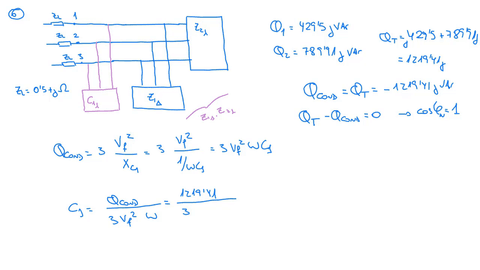 6
ZL 1
ZL 2
ZL 3
ZL = 0'5+j Ω
C1
Z1Δ
Q1 = 429'5 j VAr
Q2 = 789'91 j VAr
QT = 429'5 + 789'91j
= 1219'41j
Qcond = QT = -1219'41 j VAr
QT - Qcond = 0 → cosφ = 1
Qcond = 3 Vf² / XC = 3 Vf² / 1/ωC = 3 Vf² ω C
C = Qcond / 3 Vf² ω = 1219'41 / 3